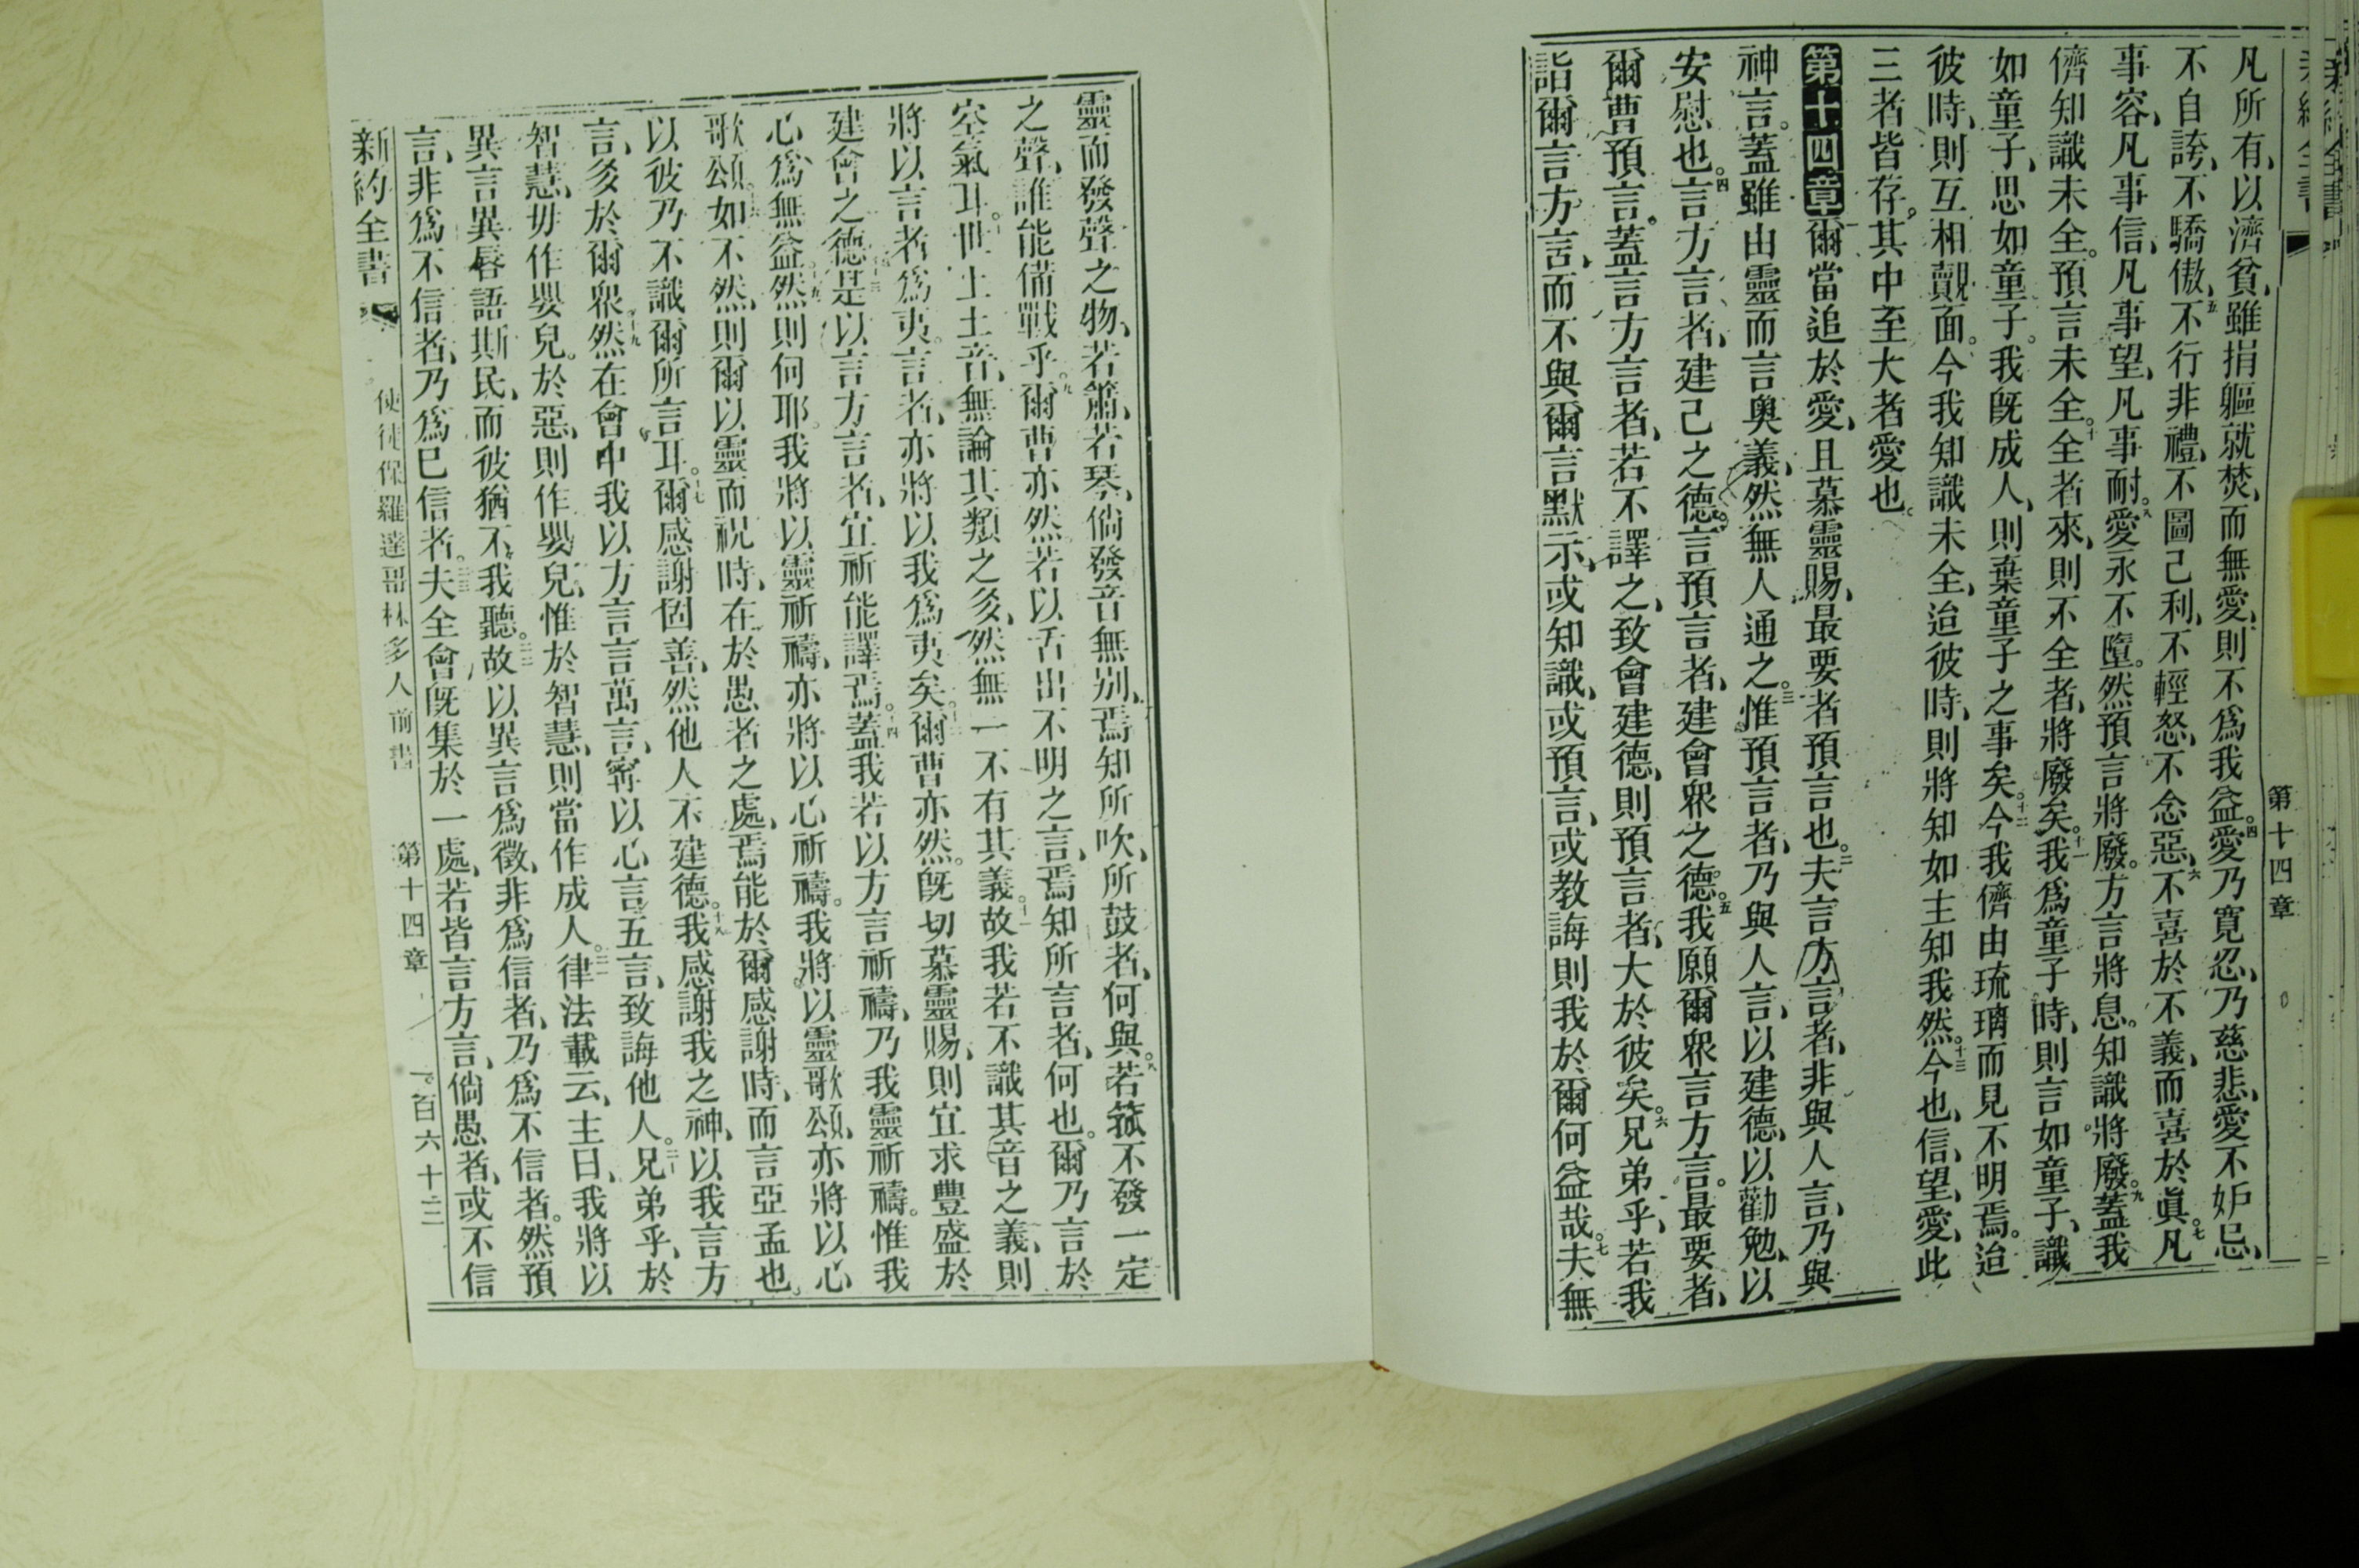 第十四章
凡所有、以濟貧、雖捐軀就焚、而無愛、則不爲我益。四愛乃寬忍、乃慈悲、愛不妒忌、
不自誇、不驕傲、五不行非禮、不圖己利、不輕怒、不念惡、六不喜於不義、而喜於眞。七凡
事容、凡事信、凡事望、凡事耐。八愛永不墮。然預言將廢。方言將息。知識將廢。九蓋我
儕知識未全。預言未全。十全者來、則不全者、將廢矣。十一我爲童子時、則言如童子、識
如童子、思如童子。我旣成人、則棄童子之事矣。十二今我儕由琉璃而見不明焉。迨
彼時、則互相覿面。今我知識未全、迨彼時、則將知如主知我然。十三今也、信、望、愛、此
三者皆存。其中至大者愛也。
第十四章爾當追於愛、且慕靈賜、最要者預言也。二夫言方言者、非與人言、乃與
神言。蓋雖由靈而言奧義、然無人通之。三惟預言者、乃與人言、以建德、以勸勉、以
安慰也。四言方言者、建己之德。言預言者、建會眾之德。五我願爾眾言方言。最要者、
爾曹預言。蓋言方言者、若不譯之、致會建德、則預言者、大於彼矣。六兄弟乎、若我
詣爾言方言、而不與爾言默示、或知識、或預言、或教誨、則我於爾何益哉。七夫無
靈而發聲之物、若簫、若琴、倘發音無別、焉知所吹、所鼓者、何與。八若箛不發一定
之聲、誰能備戰乎。九爾曹亦然。若以舌出不明之言、焉知所言者、何也。爾乃言於
空氣耳。十世上土音、無論其類之多、然無一不有其義。十一故我若不識其音之義、則
將以言者爲夷。言者、亦將以我爲夷矣。十二爾曹亦然。旣切慕靈賜、則宜求豐盛於
建會之德。十三是以言方言者、宜祈能譯焉。十四蓋我若以方言祈禱、乃我靈祈禱。惟我
心爲無益。十五然則何耶。我將以靈祈禱、亦將以心祈禱。我將以靈歌頌、亦將以心
歌頌。十六如不然、則爾以靈而祝時、在於愚者之處、焉能於爾感謝時、而言亞孟也。
以彼乃不識爾所言耳。十七爾感謝固善、然他人不建德。十八我感謝我之神、以我言方
言、多於爾眾。十九然在會中、我以方言言萬言、寧以心言五言、致誨他人。二十兄弟乎、於
智慧、毋作嬰兒。於惡、則作嬰兒、惟於智慧、則當作成人。二一律法載云、主曰、我將以
異言異唇、語斯民、而彼猶不我聽。二二故以異言爲徵、非爲信者、乃爲不信者。然預
言、非爲不信者、乃爲已信者。二三夫全會旣集於一處、若皆言方言、倘愚者、或不信
新約全書　使徒保羅達哥林多人前書　第十四章　一百六十三